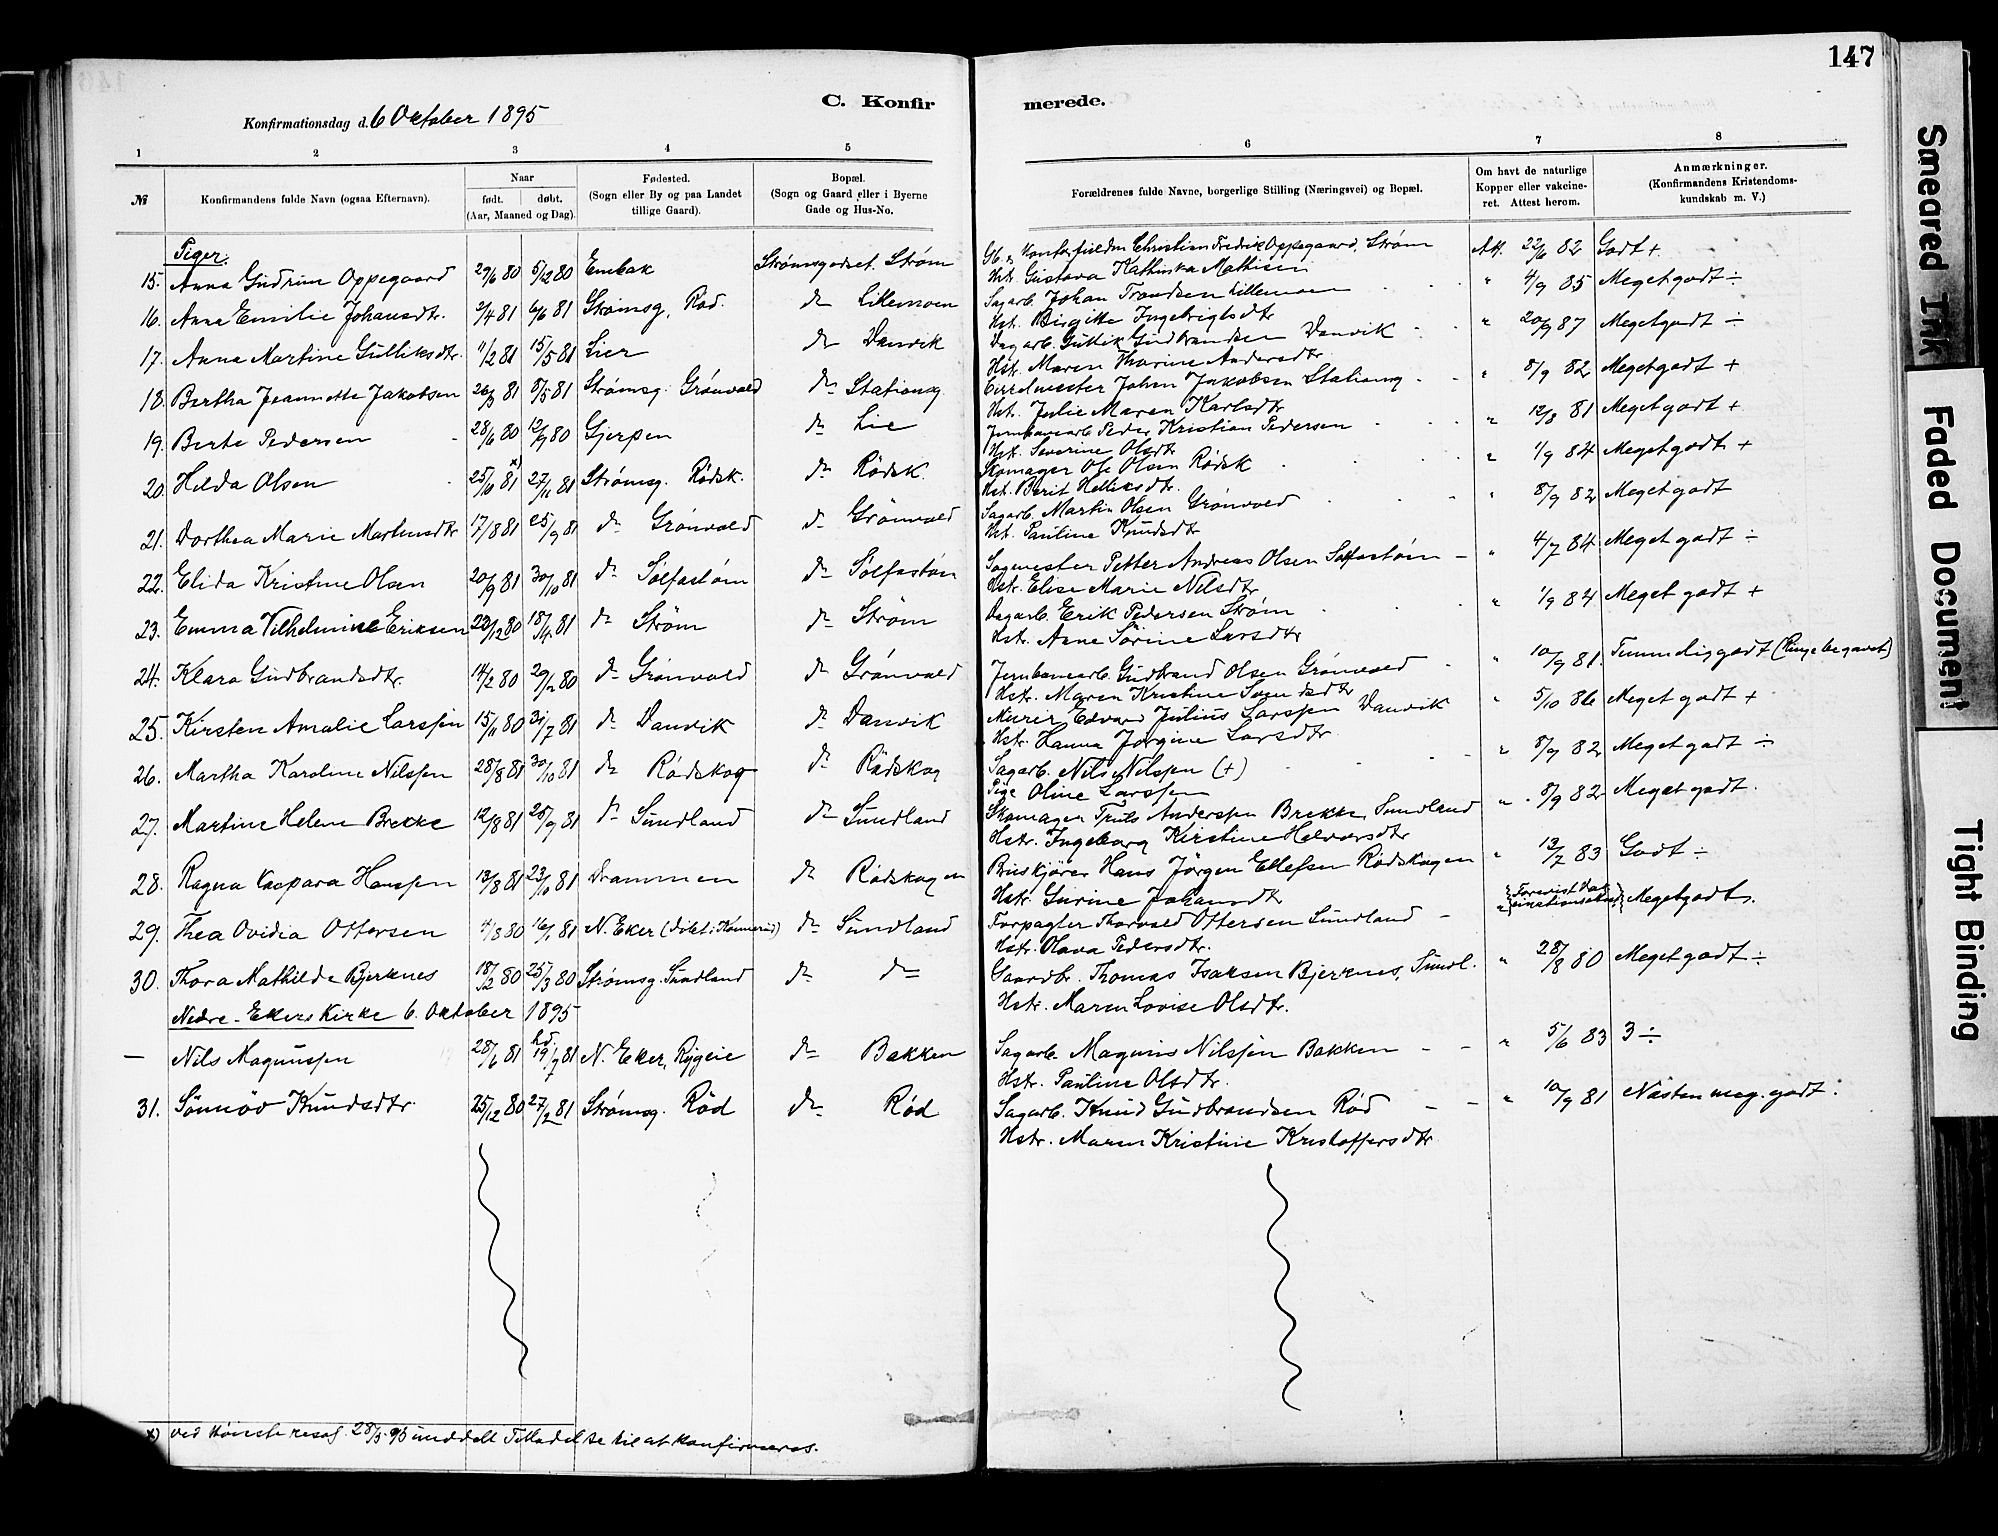 147
C. Konfir merede.
Konfirmationsdag d. 6 Oktober 1895
1 2 3 4 5 6 7 8
№
Konfirmandens fulde Navn (ogsaa Efternavn).
Naar
født. døbt.
(Aar, Maaned og Dag).
Fødested.
(Sogn eller By og paa Landet
tillige Gaard).
Bopæl.
(Sogn og Gaard eller i Byerne
Gade og Hus-No.
Forældrenes fulde Navne, borgerlige Stilling (Næringsvei) og Bopæl.
Om havt de naturlige
Kopper eller vakcine-
ret. Attest herom.
Anmærkninger.
(Konfirmandens Kristendoms-
kundskab m. V.)
Piger.
15. Anna Gudrun Oppegaard 29/6 80 5/12 80 Enebak Strømsgodset. Strøm Christian Fredrik Oppegaard, Strøm Att. 22/6 82 Godt +
Hst. Gustava Kathinka Mathisen
16. Anna Emilie Johansdtr. 2/4 81 6/6 81 Strømsg. Rød. do Lillemoen Sagarb. Johan Trondsen Lillemoen " 4/9 85 Meget godt ÷
Hst. Birgitte Ingebrigtsdtr
17. Anna Martine Gulliksdtr. 11/2 81 15/5 81 Lier do Danvik Dagarb. Gullik Gudbrandsen Danvik " 20/9 87 Meget godt ÷
Hst. Maren Thorine Andersdtr
18. Bertha Jeannette Jakobsen 26/3 81 8/5 81 Strømsg. Grønvold do Stationsg. Johan Jakobsen Stationsg " 8/9 82 Meget godt +
Hst. Julie Maren Karlsdtr
19. Berte Pedersen 28/6 80 12/9 80 Gjerpen do Lie Jernbanearb. Peder Kristian Pedersen " 12/8 81 Meget godt +
Hst. Severine Olsdtr
20. Hilda Olsen 25/10 81 x) 27/11 81 Strømsg. Rødsk. do Rødsk. Skomager Ole Olsen Rødsk " 1/9 84 Meget godt +
Hst. Berit Helliksdtr.
21. Dorthea Marie Martinsdtr 17/8 81 25/9 81 do Grønvold do Grønvold Sagarb. Martin Olsen Grønvold " 8/9 82 Meget godt
Hst. Pauline Knudsdtr
22. Elida Kristine Olsen 20/9 81 30/10 81 do Solfastøen do Solfastøen Sagmester Petter Andreas Olsen Solfastøen " 4/7 84 Meget godt ÷
Hstr. Elise Marie Nilsdtr
23. Emma Vilhelmine Eriksen 22/12 80 18/4 81 do Strøm do Strøm Dagarb. Erik Pedersen Strøm " 1/9 84 Meget godt +
Hst. Anne Sørine Larsdtr
24. Klara Gudbrandsdtr. 14/2 80 29/12 80 do Grønvold do Grønvold Jernbanearb. Gudbrand Olsen Grønvold " 10/9 81. Temmelig godt (Ringe begavet)
Hst. Maren Kristine Svendsdtr
25. Kirsten Amalie Larssen 15/11 80 31/7 81 do Danvik do Danvik Murer Edvard Julius Larssen Danvik " 5/10 86 Meget godt +
Hstr. Hanna Jørgine Larsdtr
26. Martha Karoline Nilssen 28/8 81 30/10 81 do Rødskog do Rødskog Sagarb. Nils Nilssen (+) " 8/9 82 Meget godt ÷
Pige Oline Larssen
27. Martine Helene Brekke 12/8 81 25/9 81 do Sundland do Sundland Skomager Truls Anderssen Brekke, Sundland " 8/9 82 Meget godt.
Hstr. Ingeborg Kirstine Halvorsdtr
28. Ragna Kaspara Hanssen 13/8 81 23/10 81 Drammen do Rødskogen Hans Jørgen Ellefsen Rødskogen " 13/7 83 Godt ÷
Hstr. Gurine Johansdtr
29. Thea Ovidia Ottersen 4/8 80 16/1 81 N. Eker (døbt i Konnerud) do Sundland Forpagter Thorvald Ottersen Sundland " Forevist Vak-
cinationsattest Meget godt.
Hstr. Olava Pedersdtr.
30. Thora Mathilde Bjerknes 18/2 80 25/3 80 Strømsg. Sundland do do Gaardbr. Thomas Isaksen Bjerknes, Sundl. " 28/8 80 Meget godt ÷
Hstr. Maren Lovise Olsdtr.
Nedre-Ekers Kirke 6. Oktober 1895
— Nils Magnussen 28/6 81 hd. 19/7 81 N. Eker, Rygeie do Bakken Sagarb. Magnus Nilssen Bakken " 5/6 83 3 ÷
Hstr. Pauline Olsdtr.
31. Sønnøv Knudsdtr. 25/12 80 27/2 81 Strømsg. Rød do Rød Sagarb. Knud Gudbrandsen Rød " 10/9 81 Næsten meg. godt.
Hstr. Maren Kristine Kristoffersdtr
x) ved Høieste resol. 28/3 95 meddelt Tilladelse til at konfirmeres.
Smeared Ink
Faded Document
Tight Binding